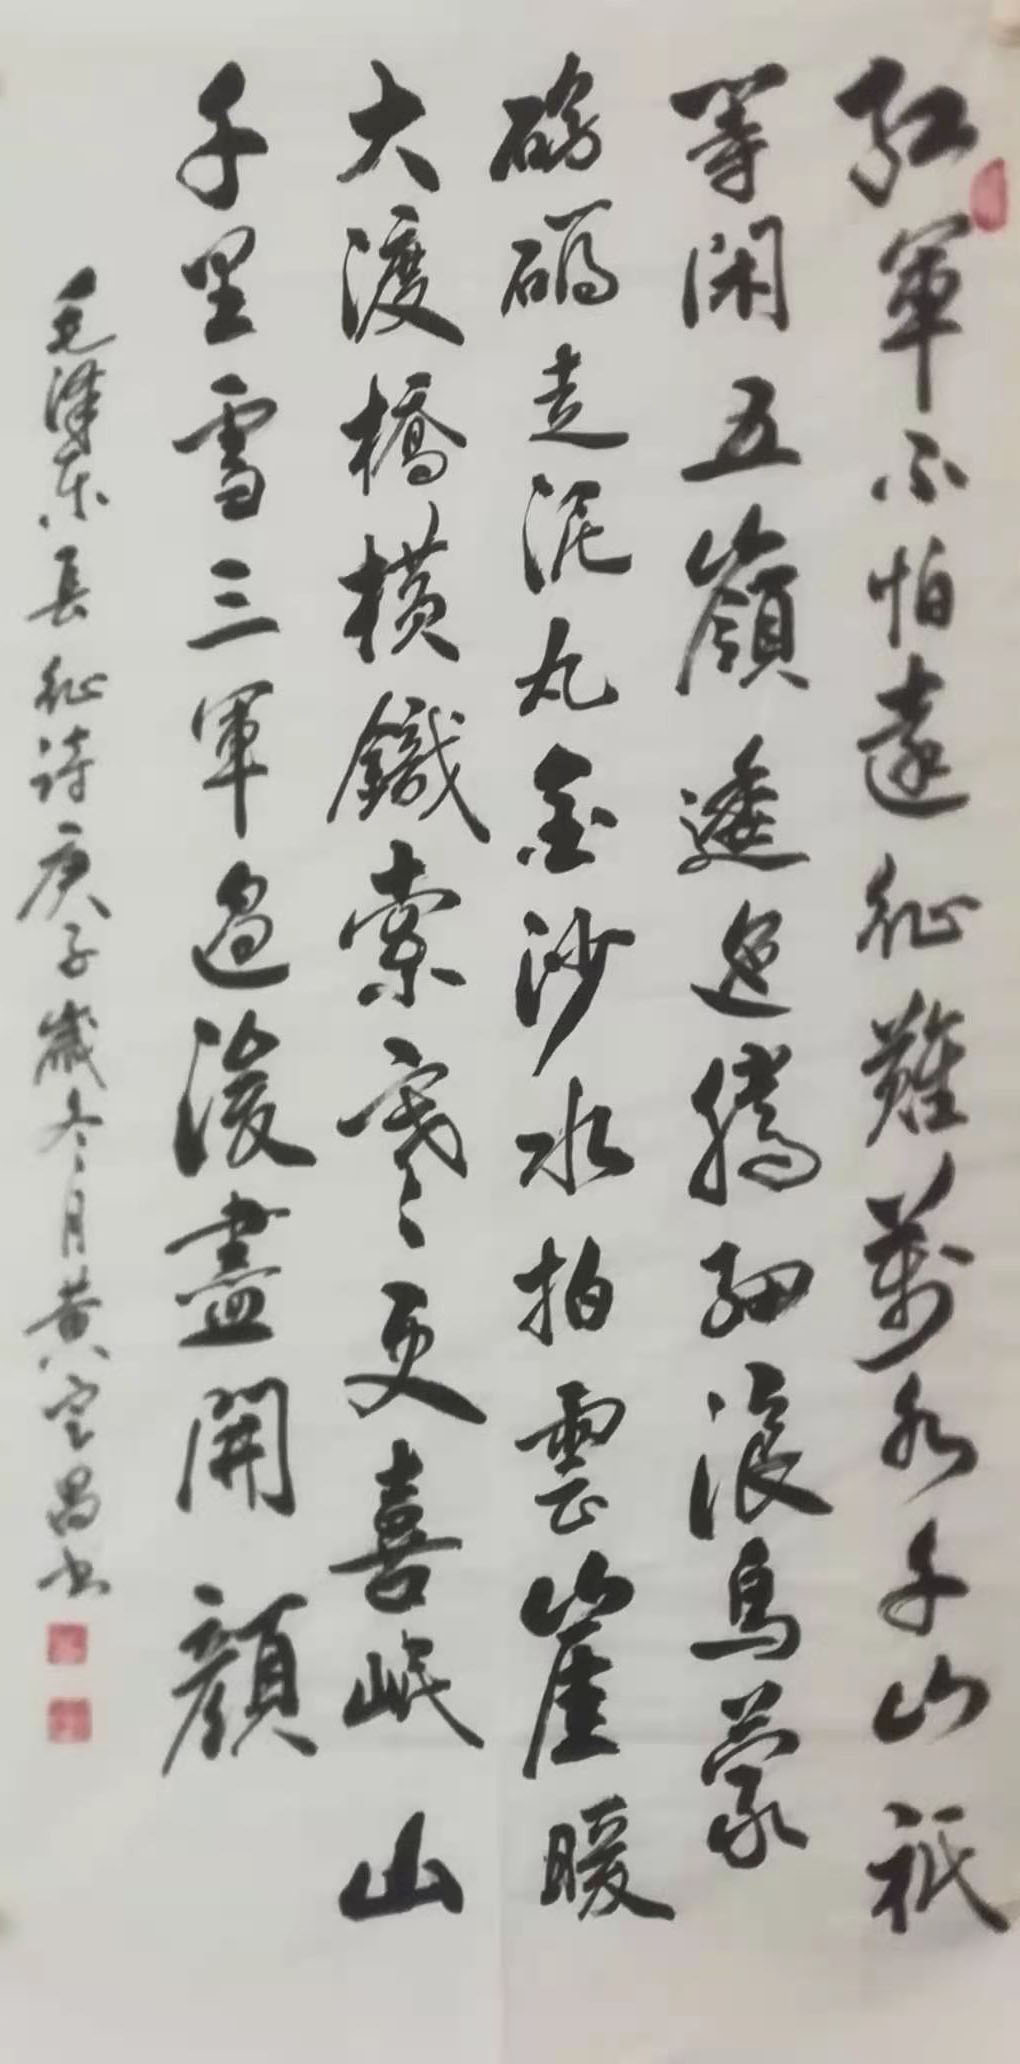 紅軍不怕遠征難萬水千山祇
等閑五嶺逶迤騰細浪烏蒙
磅礴走泥丸金沙水拍雲崖暖
大渡橋橫鐵索寒更喜岷山
千里雪三軍過後盡開顏
毛澤东長征詩庚子歲冬月黄定昌书